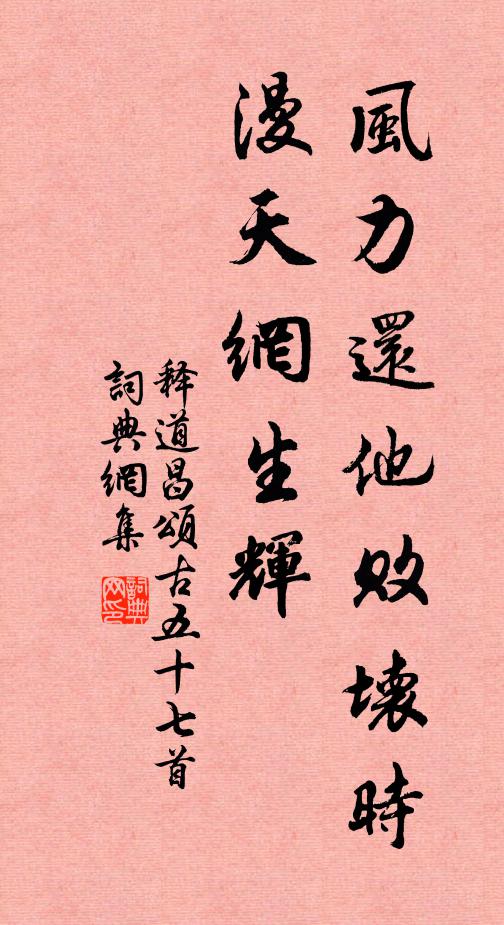 風力還他敗壞時
漫天網生輝
释道昌頌古五十七首
詞典網集
詞典网印